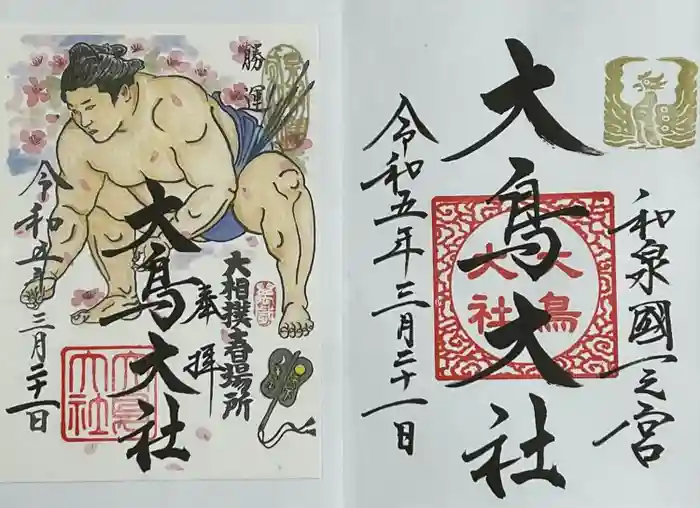 和泉國一之宮
大鳥大社
大鳥大社
令和五年三月二十一日
勝運
大相撲春場所
奉拝
大鳥大社
令和五年三月二十一日